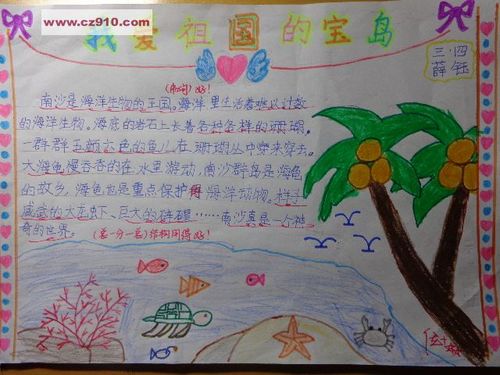 www.cz910.com
我爱祖国的宝岛
三.四
薛钰
(用词)好!
南沙是海洋生物的王国。海洋里生活着难以计数
的海洋生物。海底的岩石上长着各种各样的珊瑚。
一群群五颜六色的鱼儿在珊瑚丛中穿来穿去。
大海龟慢吞吞的在水里游动。南沙群岛是海龟
的故乡。海龟也是重点保护的海洋动物。样子
威武的大龙虾、巨大的砗磲……南沙真是一个神
奇的世界。
(总一分一总)结构用得好!